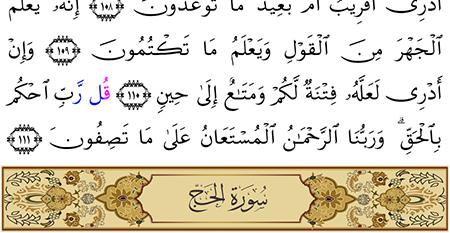 أَدْرِىٓ أَقَرِيبٌ أَم بَعِيدٌ مَّا تُوعَدُونَ ١٠٩ إِنَّهُۥ يَعْلَمُ
ٱلْجَهْرَ مِنَ ٱلْقَوْلِ وَيَعْلَمُ مَا تَكْتُمُونَ ١١٠ وَإِنْ
أَدْرِى لَعَلَّهُۥ فِتْنَةٌ لَّكُمْ وَمَتَٰعٌ إِلَىٰ حِينٍ ١١١ قُل رَّبِّ ٱحْكُم
بِٱلْحَقِّ ۗ وَرَبُّنَا ٱلرَّحْمَٰنُ ٱلْمُسْتَعَانُ عَلَىٰ مَا تَصِفُونَ ١١١
سُورَةُ الحَجِّ